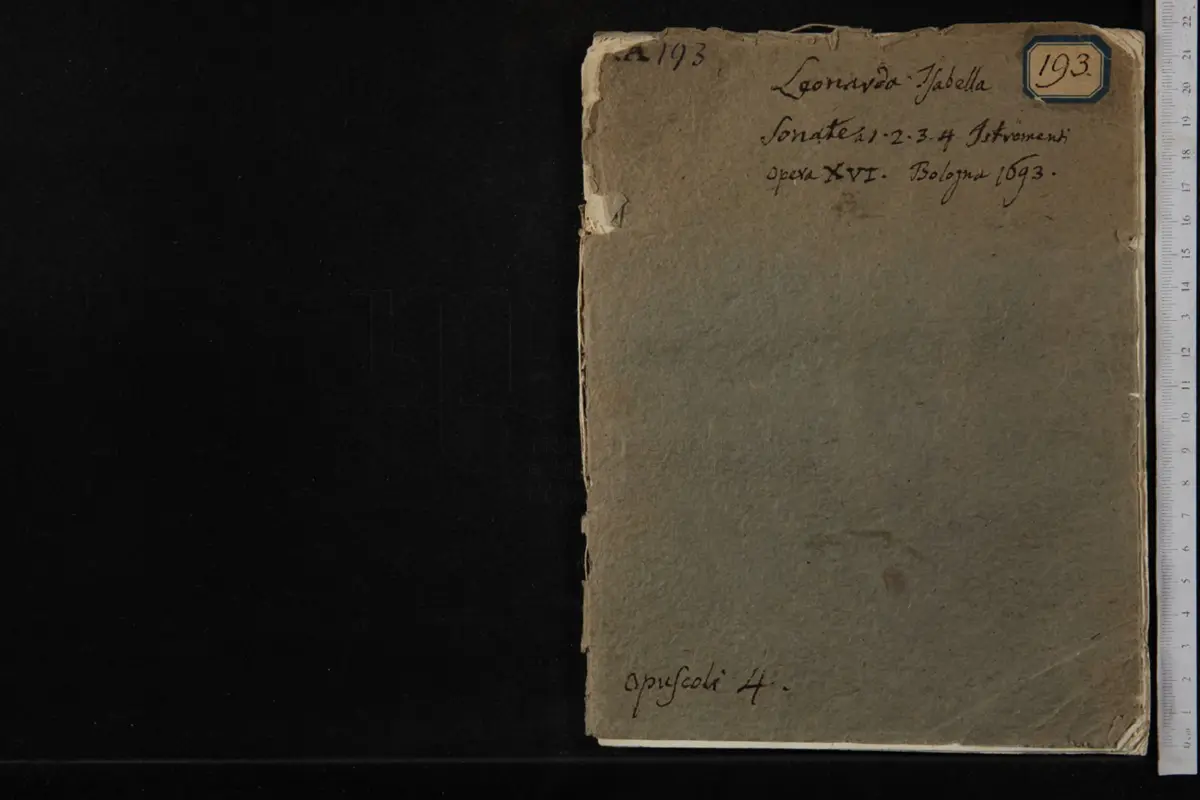 A 193
193.
Leonarda Isabella
Sonate à 1. 2. 3. 4 Istromenti
opera XVI. Bologna 1693.
opuscoli 4.
22
21
20
19
18
17
16
15
14
3
12
11
10
9
8
7
6
5
4
3
2
1